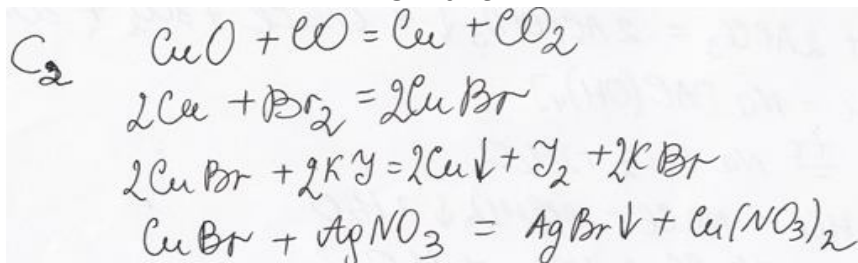 C2 CuO + CO = Cu + CO2
2Cu + Br2 = 2CuBr
2CuBr + 2KJ = 2Cu↓ + J2 + 2KBr
CuBr + AgNO3 = AgBr↓ + Cu(NO3)2